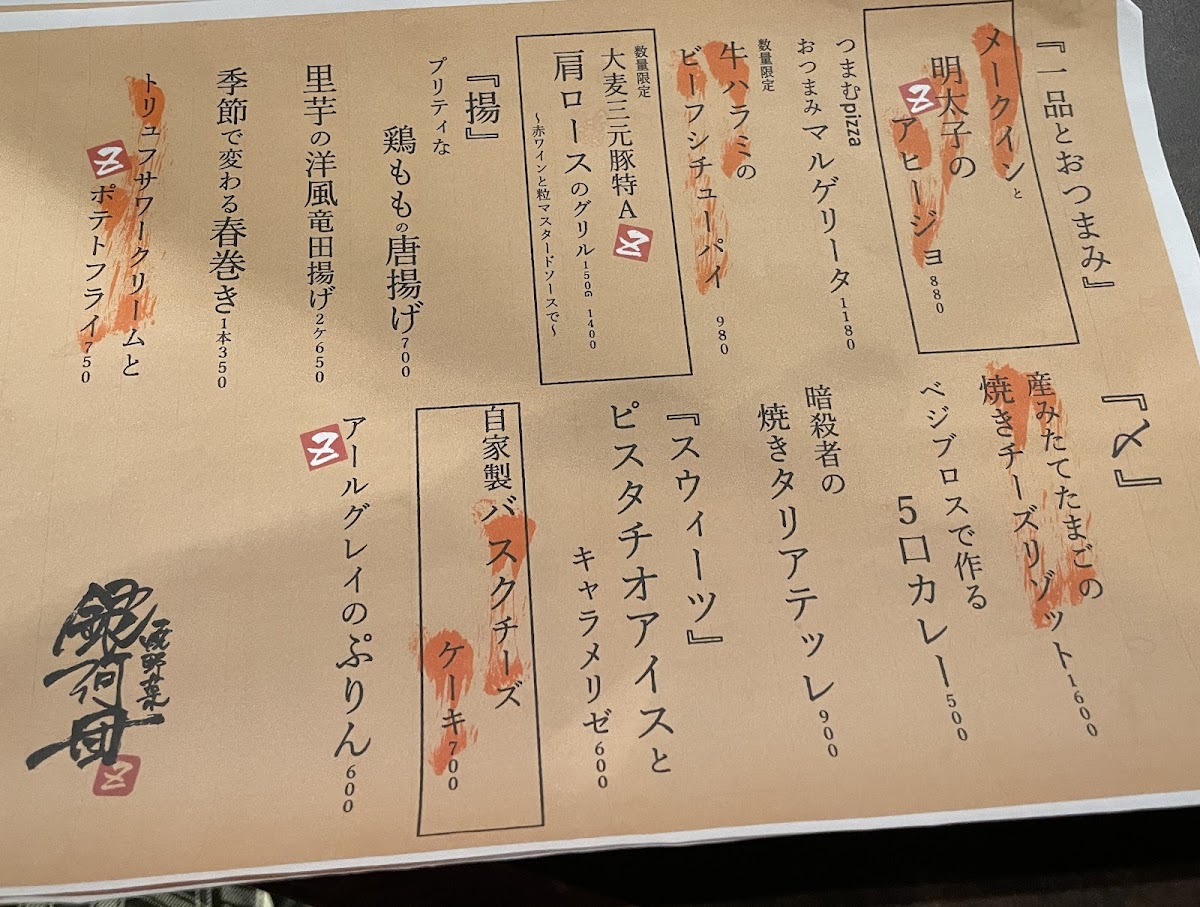 『一品とおつまみ』
メークインと
明太子の
Z アヒージョ 880
つまむpizza
おつまみマルゲリータ 1180
数量限定
牛ハラミの
ビーフシチューパイ 980
数量限定
大麦三元豚特A Z
肩ロースのグリル 150g 1400
~赤ワインと粒マスタードソースで~
『揚』
プリティな
鶏ももの唐揚げ 700
里芋の洋風竜田揚げ 2ケ650
季節で変わる春巻き 1本350
トリュフサワークリームと
Z ポテトフライ 750
『〆』
産みたてたまごの
焼きチーズリゾット 1600
ベジブロスで作る
5口カレー 500
暗殺者の
焼きタリアテッレ 900
『スウィーツ』
ピスタチオアイスと
キャラメリゼ 600
自家製バスクチーズ
ケーキ 700
アールグレイのぷりん 600
Z
銀河団
Z